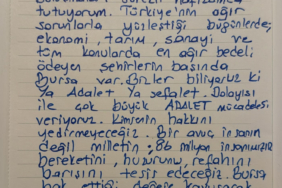 tutuyorum. Türkiye'nin ağır
sorunlarla yüzleştiği bugünlerde,
ekonomi, tarım, sanayi ve
tüm konularda en ağır bedeli
ödeyen şehirlerin başında
Bursa var. Bizler biliyoruz ki
Ya Adalet Ya sefalet. Dolayısı
ile çok büyük ADALET mücadelesi
veriyoruz. Kimsenin hakkını
yedirmeyeceğiz. Bir avuç insanın
değil milletin, 86 milyon insanımızın
bereketini, huzurunu, refahını
barışını tesis edeceğiz. Bursa
hak ettiği değere kavuşacak